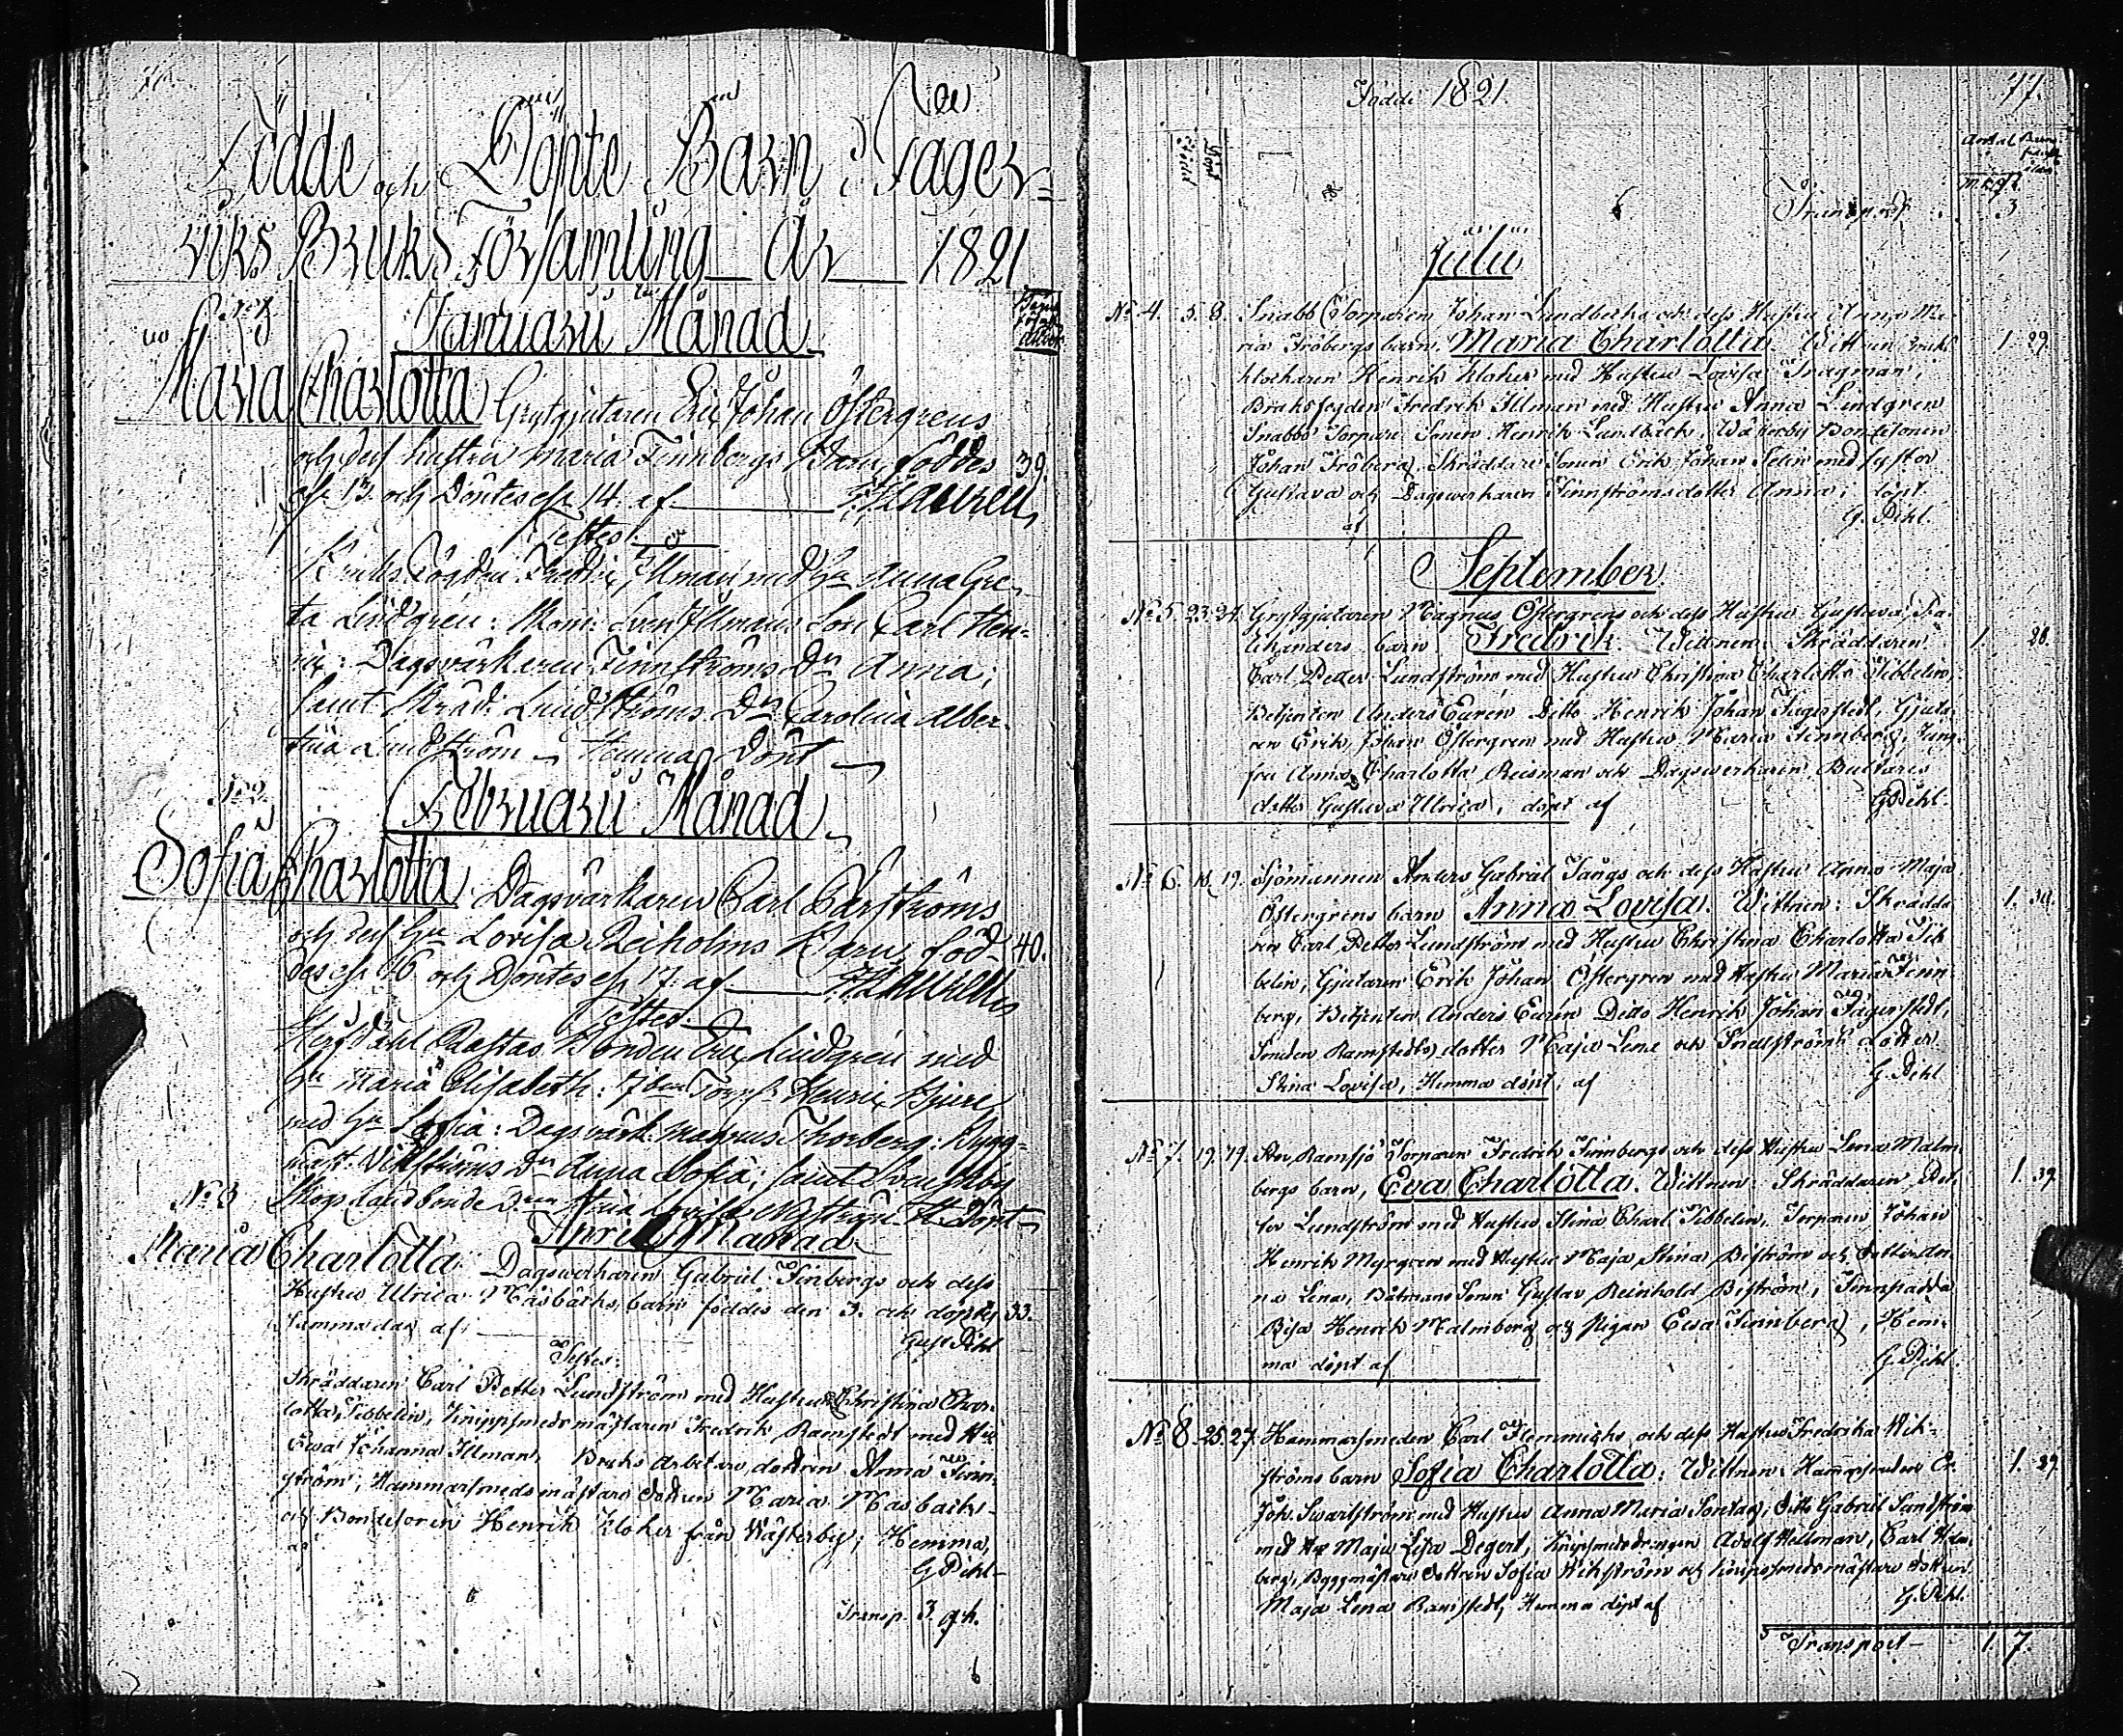 Födde och Döpte Barn i Fager=
viks Bruks Församling År 1821
No 1
Januarii Månad
Maria Charlotta Grytgjutaren Eric Johan Östergrens
och dess hustru Maria Finnbergs Barn, föddes 39.
13 och Döptes 14 af
Testes
Bruks Fogden Fredric Illman med Hu Anna Gre-
ta Lindgren: Sven Illmans Son Carl Hen-
ric: Dagsvärkaren Finnströms Dr Anna;
samt Skräd: Lundströms Dr Carolina Alber-
tina Lundström Hemma Döpt
No 2
Februarii Månad
Sofia Charlotta Dagsvärkaren Carl
och dess Hu Lovisa Reiholms Barn, föd- 40.
des 16 och Döptes 17 af
Testes
Bonden Eric Lindgren med
Hu Maria Elisabeth: Henric
med Hu Sofia: Dagsvärk: Magnus Thorberg: Bygg-
mäst: Vikströms Dr Anna Sofia; samt
No 3
April Månad
Maria Charlotta Dagswerkaren Gabriel Finbergs och dess
Hustru Ulrica Måsbacks barn föddes den 3. och döptes 33.
samma dag af Gust Pihl
Testes:
Skräddaren Carl Petter Lundström med Hustru Christina Char-
lotta Tibbelin, Knippsmeds mästaren Fredrik Ramstedt med Hu
Ewa Johanna Illman, Bruks Arbetare dottren Anna Finn-
ström, Hammarsmeds mästare dottren Maria Måsback
och Bondesonen Henrik Kloker från Wästerby; Hemma,
af G Pihl
Transp. 3 qk.
Födde 1821. 77.
Född Döpt
Transport 3
Julii
No 4. 5. 8. Snabb Torparen Johan Lundbecks och dess Hustru Anna Ma-
ria Fröbergs barn Maria Charlotta Wittnen Bruks 1. 29.
klockaren Henrik Kloker med Hustru Lovisa Tragman,
Bruksfogden Fredrik Illman med Hustru Anna Lindgren
Snabbs Torpare Sonen Henrik Lundbäck, Wästerby Bondesonen
Johan Fröberg, Skräddare Sonen Erik Johan Selin med syster
Gustava och Dagswerkaren Finnströms dotter Anna; döpt
af G. Pihl.
September
No 5. 23. 24. Grytgjutaren Magnus Östergrens och dess Hustru Gustava
barn Fredrik. Wittnen: Skräddaren 1. 28.
Carl Petter Lundström med Hustru Christina Charlotta Tibbelin,
Betjenten Anders Euren Ditto Henrik Johan Fagerstedt, Gjuta-
ren Erik Johan Östergren med Hustru Maria Finnberg, Jung-
fru Anna Charlotta Reisman och Dagswerkaren
dotter Gustava Ulrica, döpt af G Pihl.
No 6. 18. 19. Sjömannen Anders Gabriel Tångs och dess Hustru Anna Maja
Östergrens barn Anna Lovisa. Wittnen: Skrädda- 1. 30.
ren Carl Petter Lundström med Hustru Christina Charlotta Tib
belin, Gjutaren Erik Johan Östergren med Hustru Maria Finn
berg, Betjenten Anders Euren Ditto Henrik Johan Fagerstedt,
Smeden Ramstedts dotter Maja Lena och Snellströms dotter
Stina Lovisa, Hemma döpt; af G. Pihl
No 7. 19. 19. Ramsjö Torparen Fredrik Finnbergs och dess Hustru Lena Malm
bergs barn, Eva Charlotta. Wittnen: Skräddaren Pet- 1. 39.
ter Lundström med Hustru Stina Charl. Tibbelin, Torparen Johan
Henrik Myrgren med Hustru Maja Stina Biström och
Lena, Båtmans Sonen Gustav Reinhold Biström,
Henrik Malmberg och Pigan Ewa Finnberg, Hem-
ma döpt af G. Pihl.
No 8. 25. 27. Hammarsmeden Carl Flemmichs och dess Hustru Fredrika Wik-
ströms barn Sofia Charlotta: Wittnen: Hammarsmeden 1. 29
Joh. Swartström med Hustru Anna Maria Sontag, Ditto Gabriel Sandström
med Hu Maja Lisa Degert, Knipsmedsdrängen Adolf Hellman, Carl
berg, Byggmästare dottren Sofia Wikström och Knipsmeds mästare dottren
Maja Lena Ramstedt, Hemma döpt af G. Pihl.
Transport 1. 7.